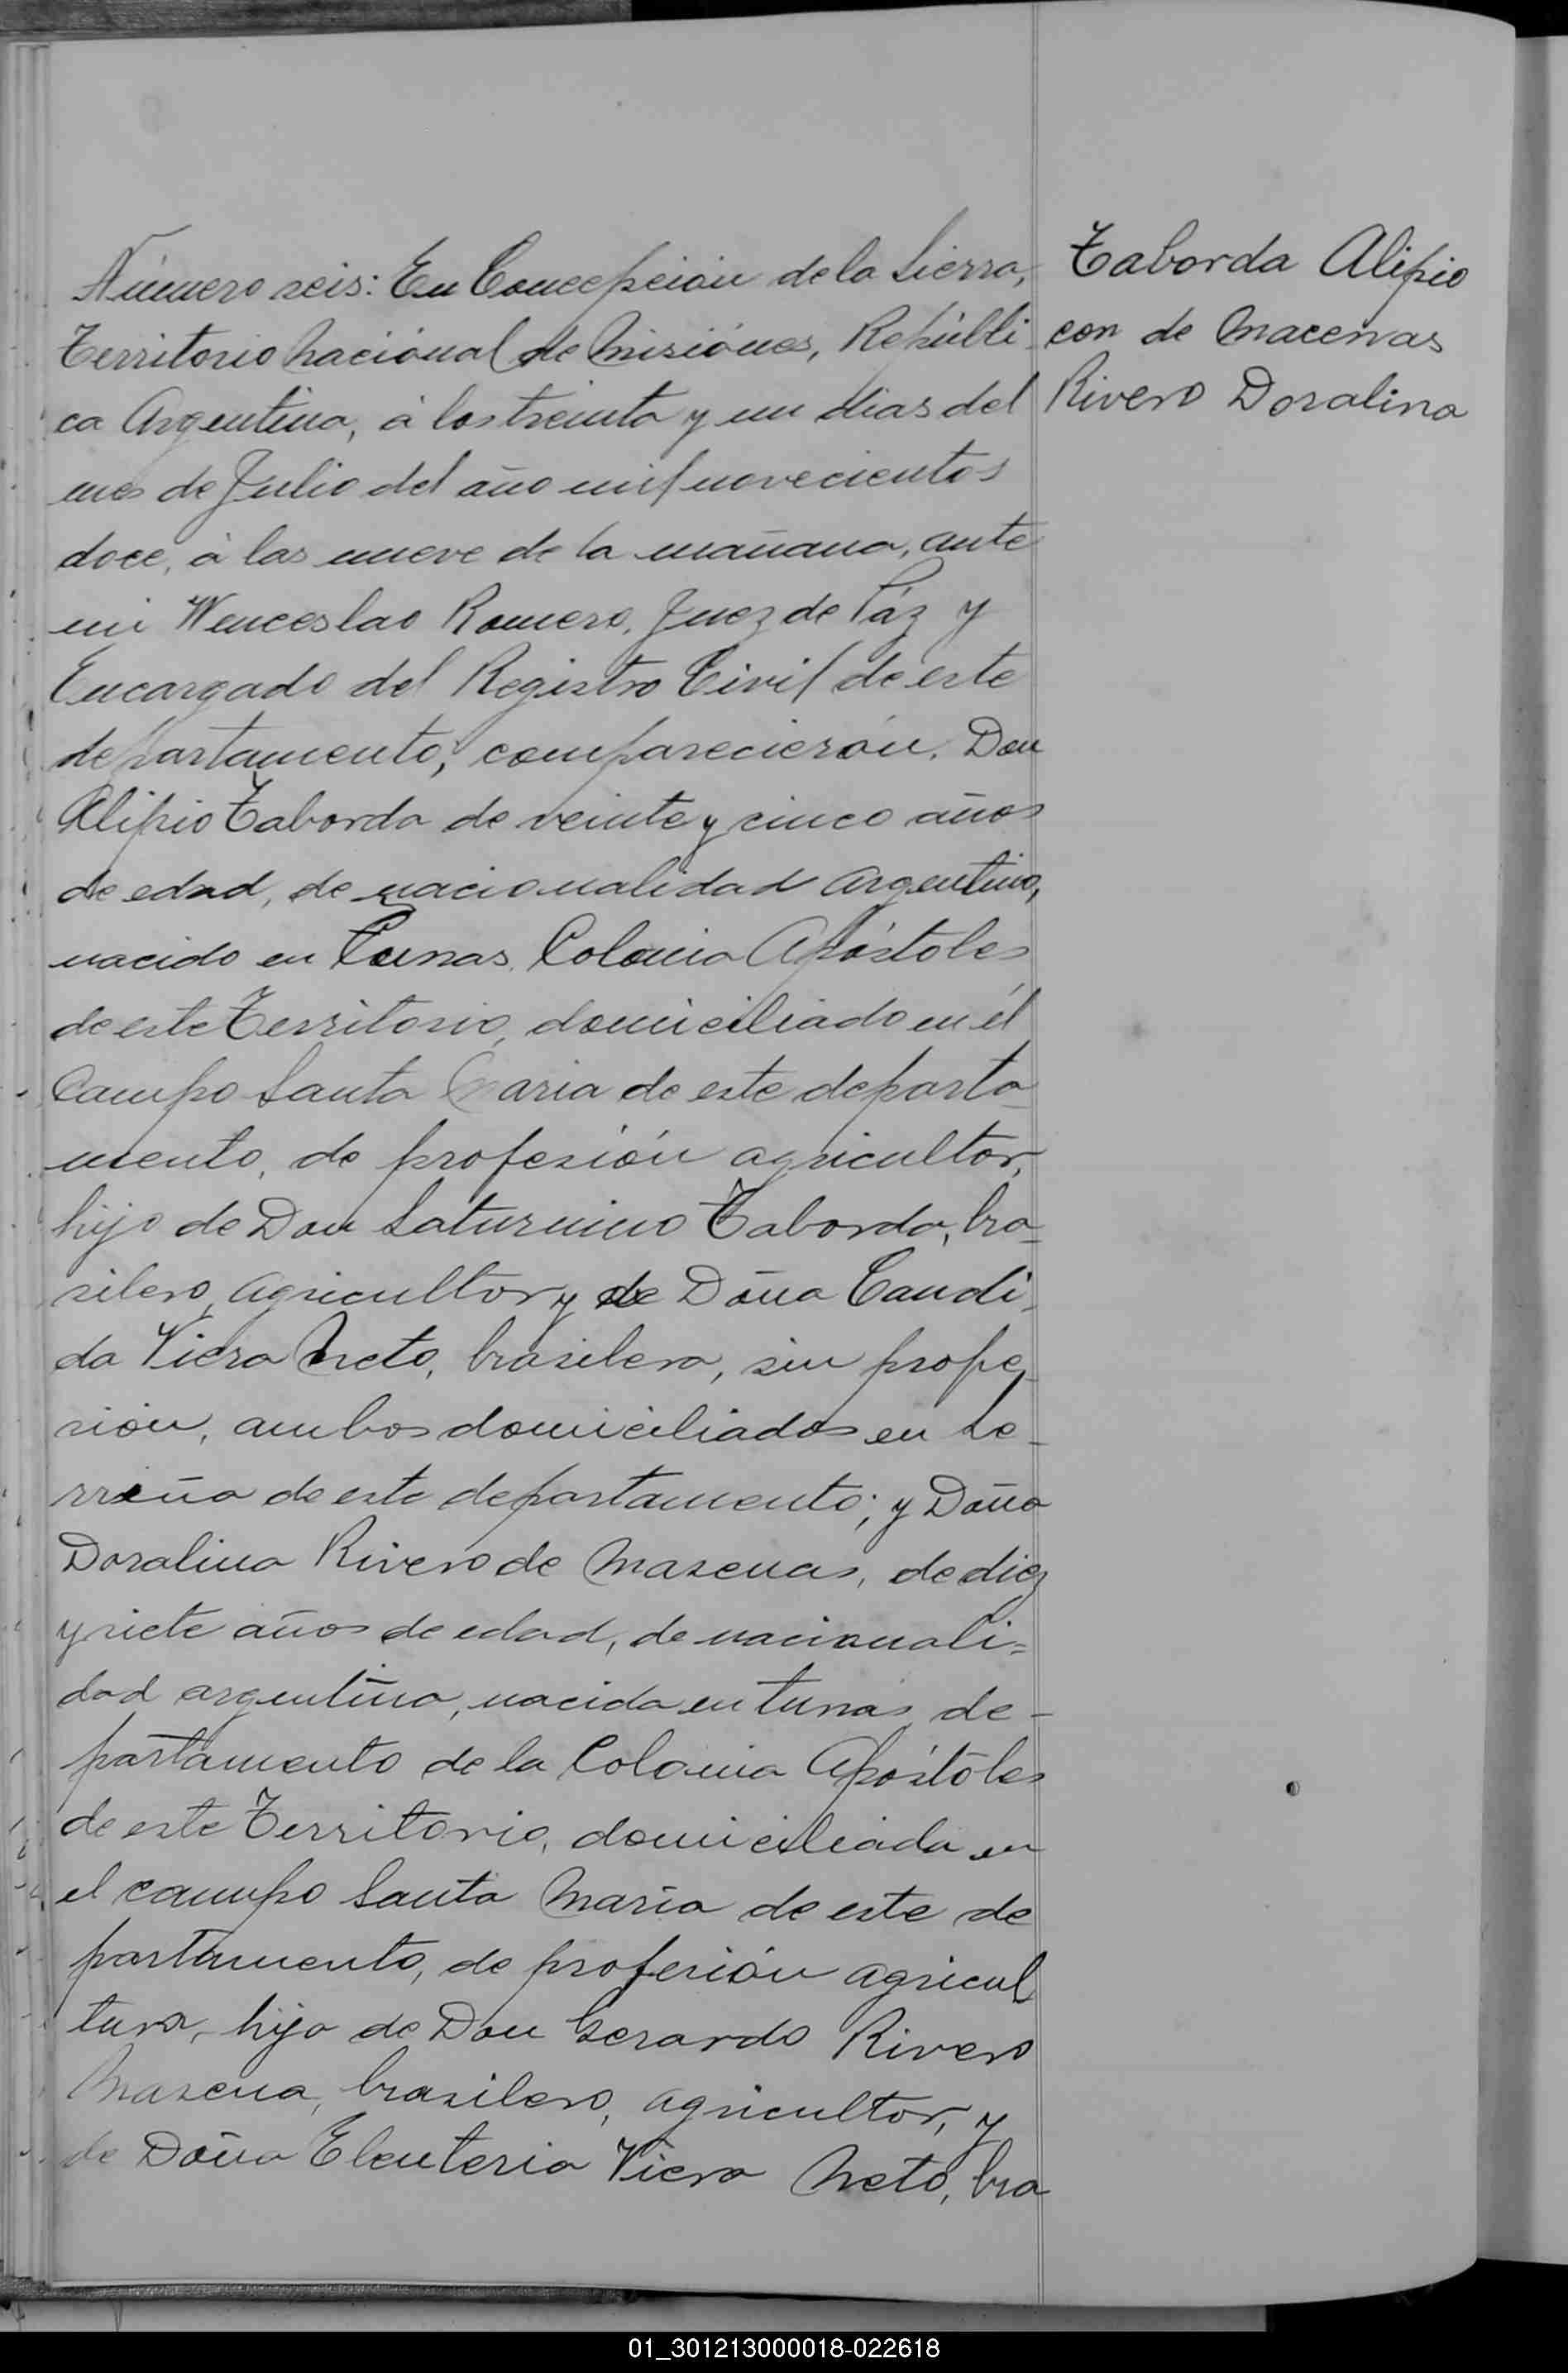 Número seis: En Concepción de la Sierra,
Territorio Nacional de Misiónes, Repúbli
ca Argentina, á los treinta y un dias del
mes de Julio del año mil novecientos
doce, á las nueve de la mañana, ante
mi Wenceslao Romero, Juez de Páz y
Encargado del Registro Civil de este
departamento, comparecierón. Don
Alipio Taborda de veinte y cinco años
de edad, de nacionalidad Argentino,
nacido en Tunas, Colonia Apóstoles
de este Territorio, domiciliado en él
Campo Santa Maria de este departa_
mento, de profesión agricultor,
hijo de Don Saturnino Taborda, bra_
silero, agricultor y de Doña Candi_
da Viera Neto, brasilera, sin profe_
sión, ambos domiciliados en
de este departamento; y Doña
Doralina Rivero de Masenas, de diez
y siete años de edad, de nacionali=
dad argentina, nacida en tunas, de-
partamento de la Colonia Apóstoles
de este Territorio, domiciliada en
el campo Santa Maria de este de
partamento, de profesión agricul
tura, hija de Don Gerardo Rivero
Masena, brasilero, agricultor, y
de Doña Eleuteria Viera Neto, bra
Taborda Alipio
con de Macenas
Rivero Doralina
01_301213000018-022618